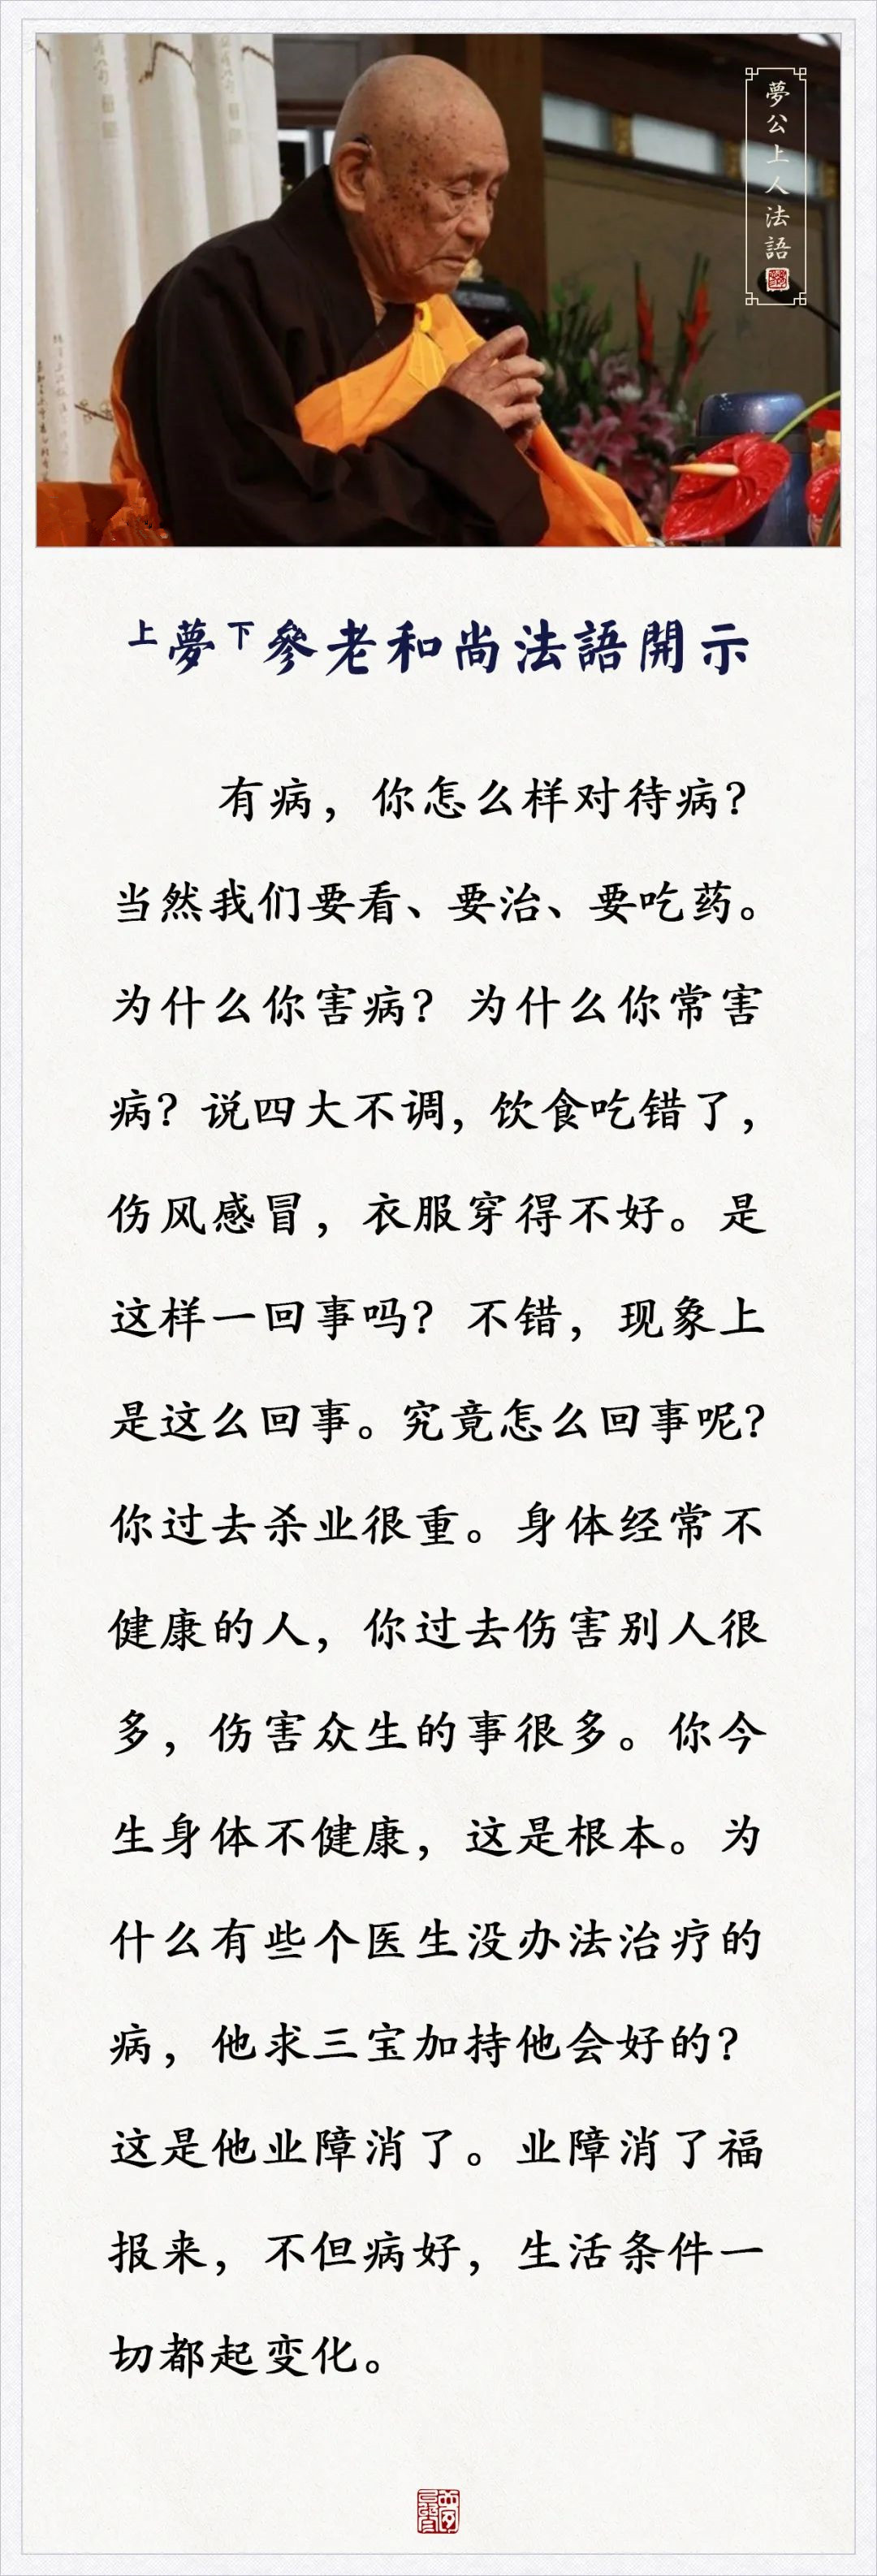 夢公上人法語
上夢下參老和尚法語開示
有病，你怎么样对待病？
当然我们要看、要治、要吃药。
为什么你害病？为什么你常害
病？说四大不调，饮食吃错了，
伤风感冒，衣服穿得不好。是
这样一回事吗？不错，现象上
是这么回事。究竟怎么回事呢？
你过去杀业很重。身体经常不
健康的人，你过去伤害别人很
多，伤害众生的事很多。你今
生身体不健康，这是根本。为
什么有些个医生没办法治疗的
病，他求三宝加持他会好的？
这是他业障消了。业障消了福
报来，不但病好，生活条件一
切都起变化。